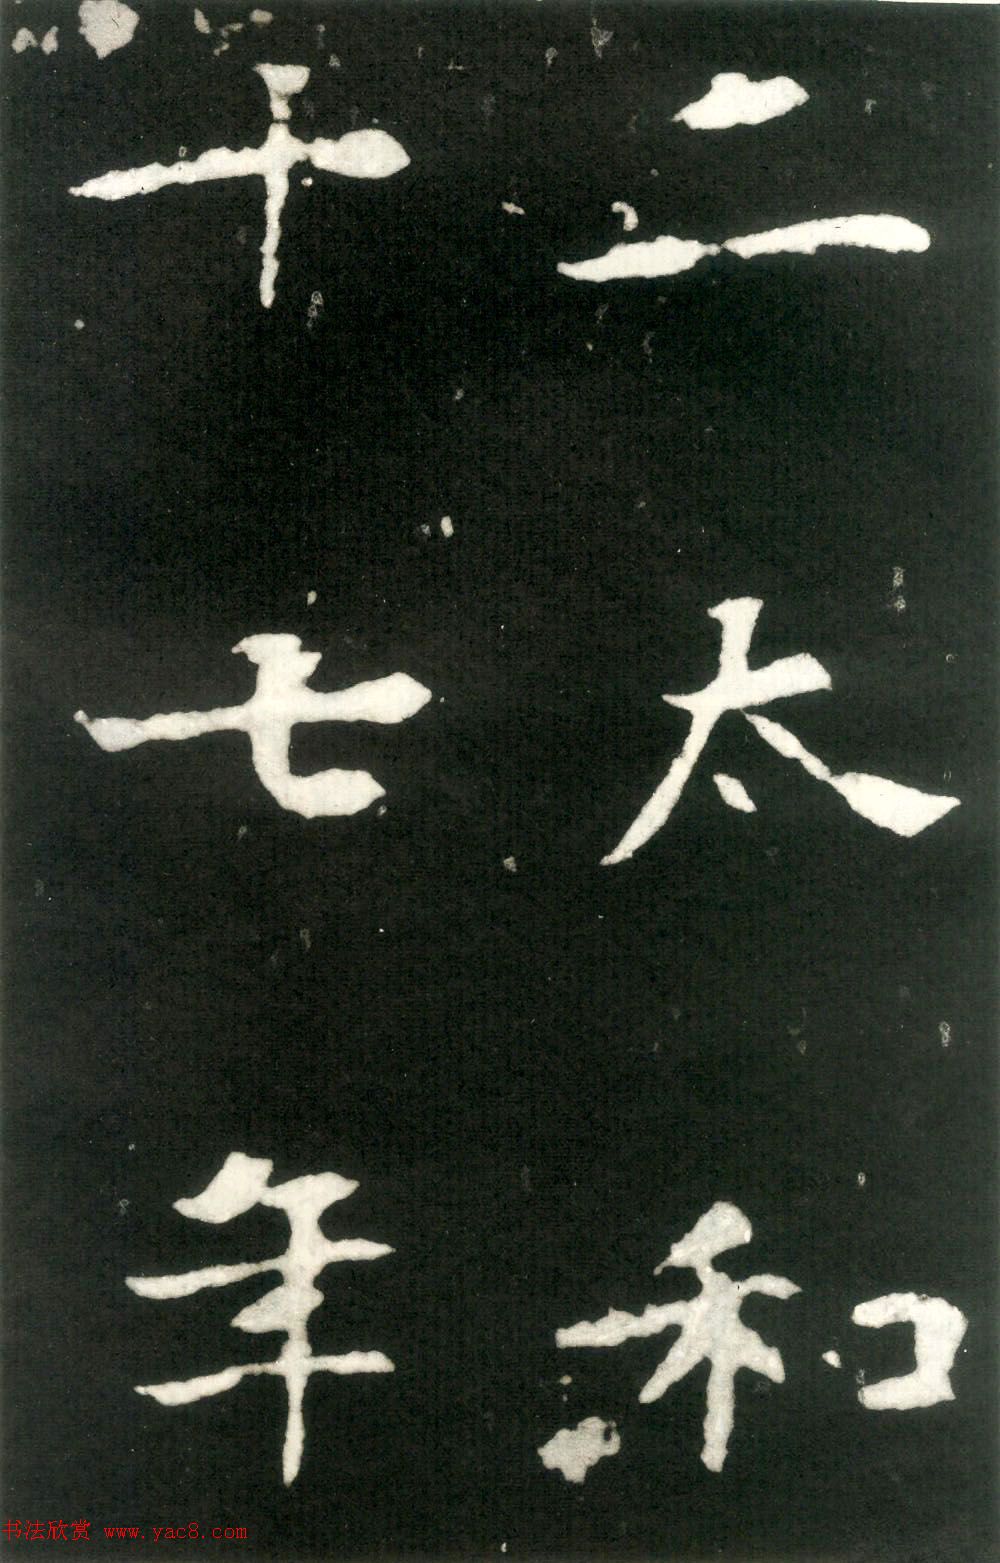 二太和
十七年
书法欣赏 www.yac8.com